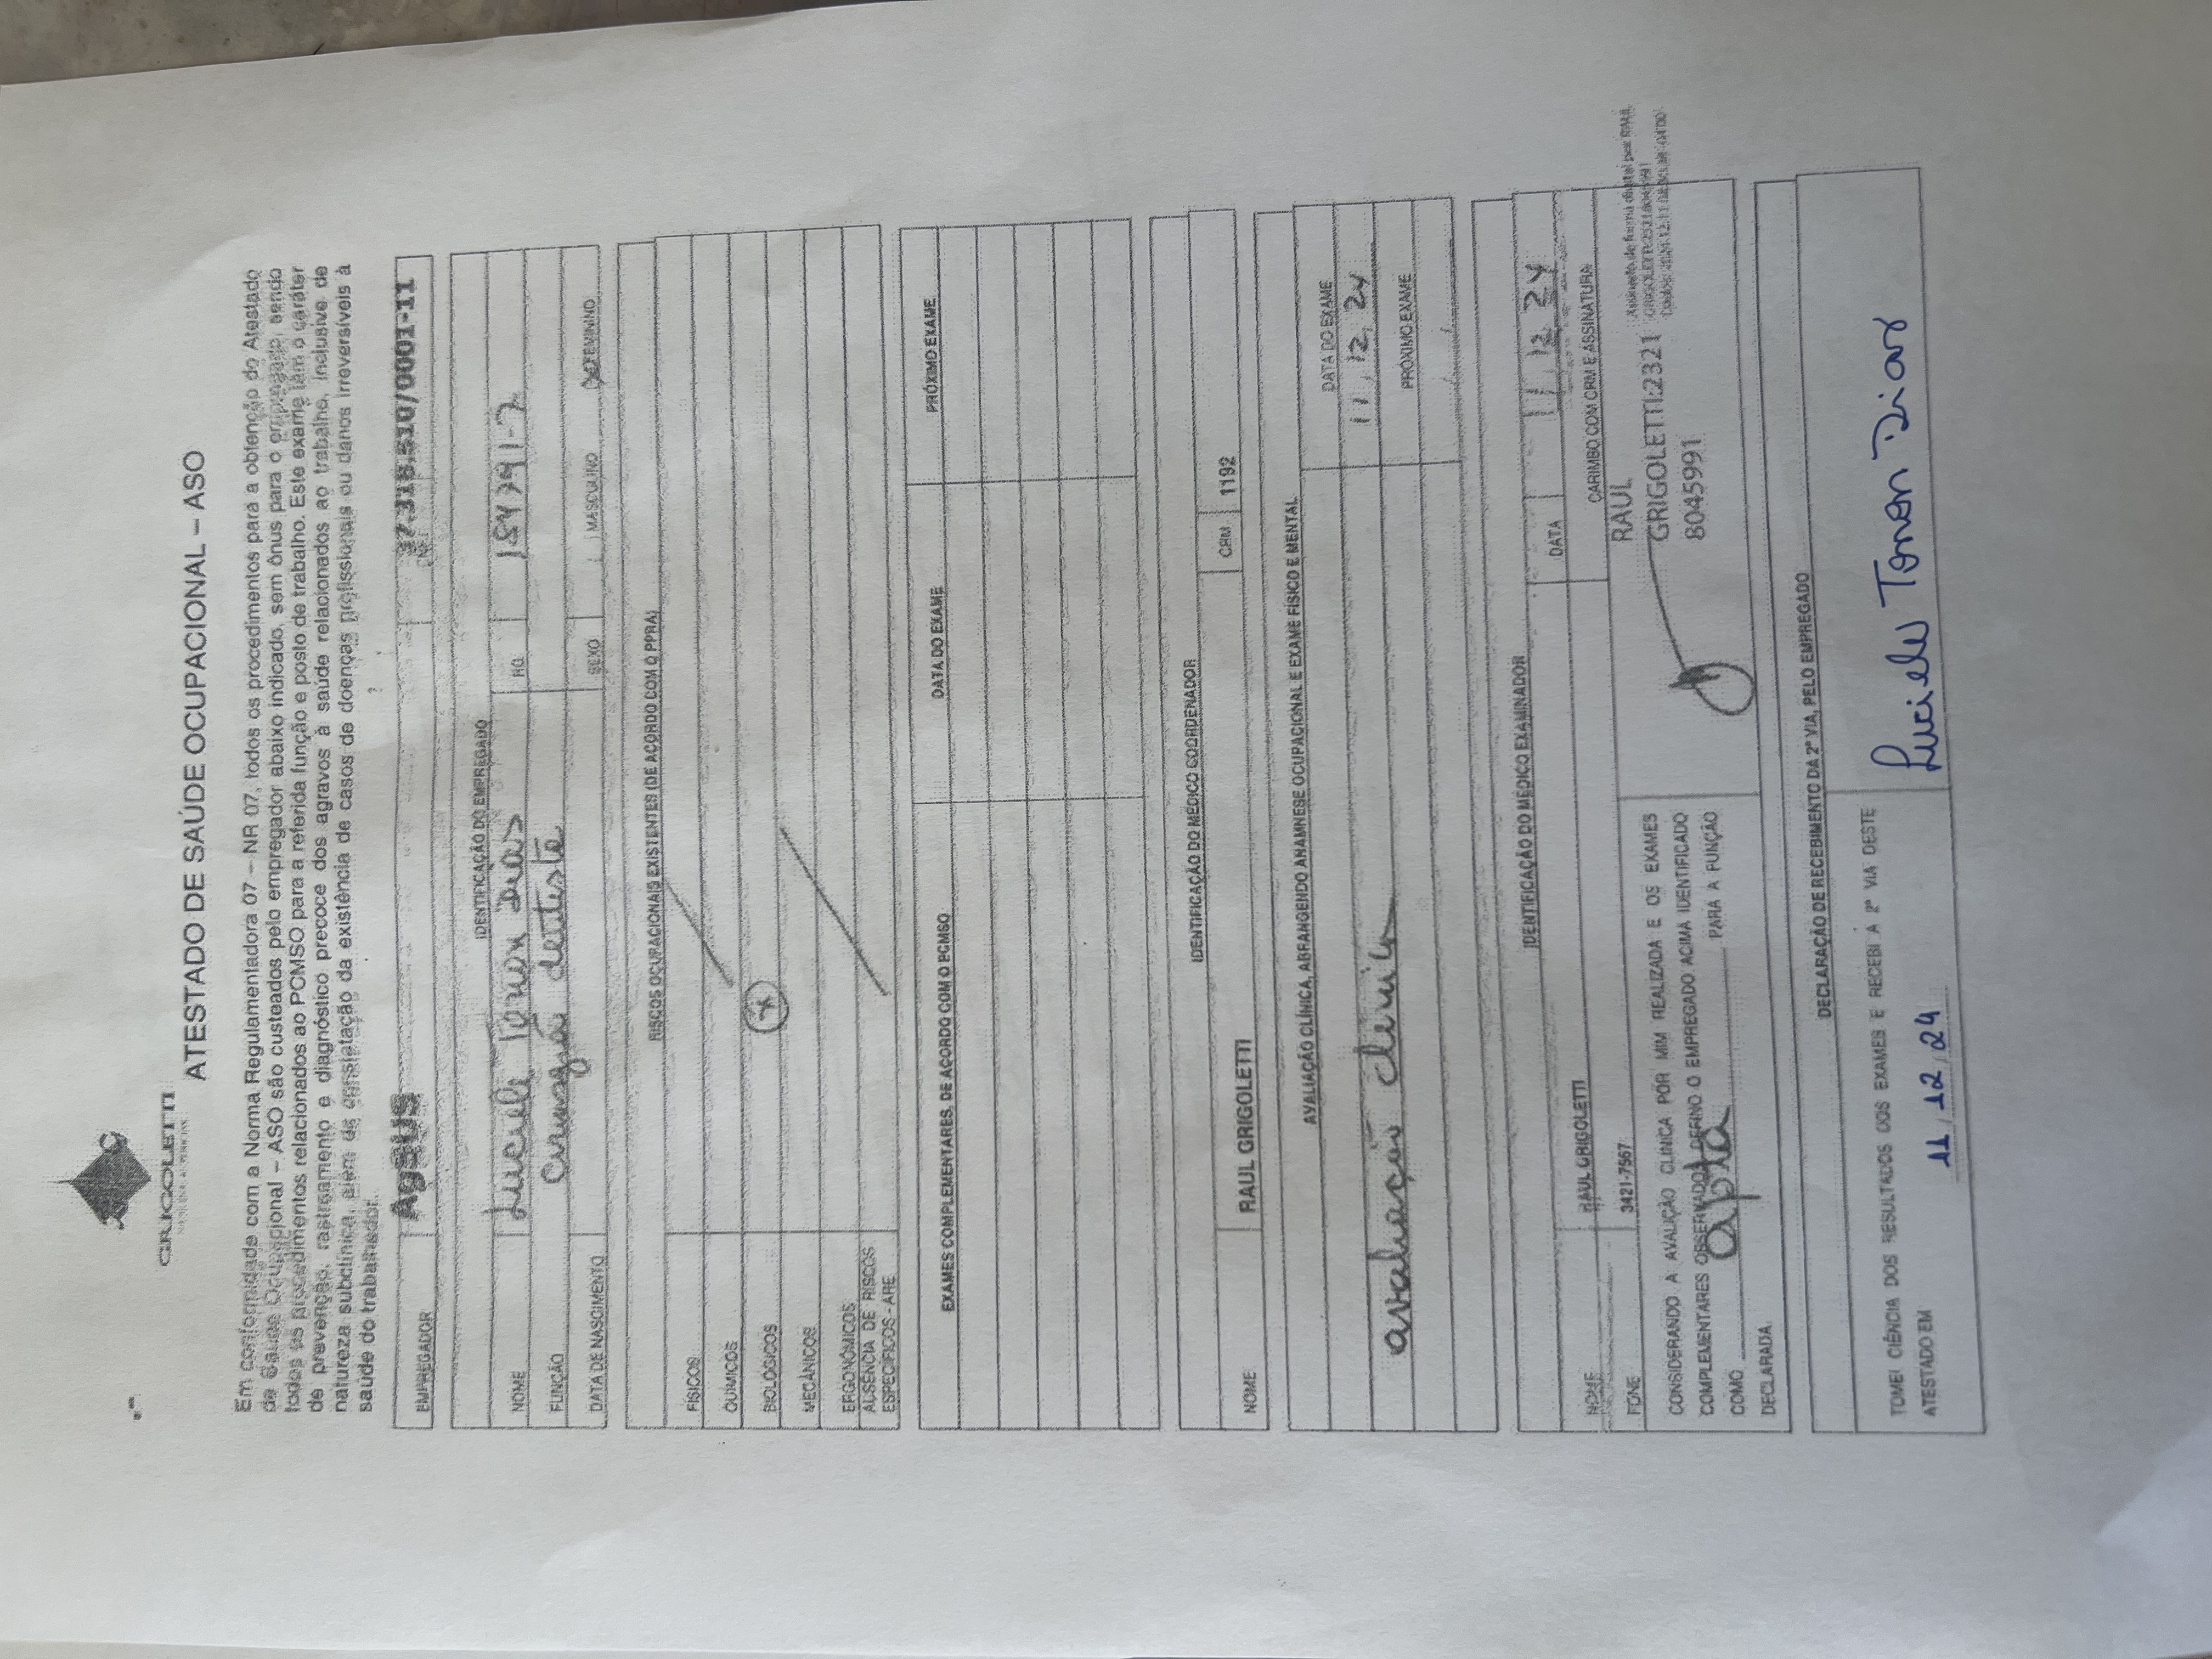 GRIGOLETTI
ATESTADO DE SAÚDE OCUPACIONAL – ASO
Em conformidade com a Norma Regulamentadora 07 – NR 07, todos os procedimentos para a obtenção do Atestado
de Saúde Ocupacional – ASO são custeados pelo empregador abaixo indicado, sem ônus para o empregado, sendo
todos os procedimentos relacionados ao PCMSO para a referida função e posto de trabalho. Este exame têm o caráter
de prevenção, rastreamento e diagnóstico precoce dos agravos à saúde relacionados ao trabalho, inclusive de
natureza subclínica, além da constatação da existência de casos de doenças profissionais ou danos irreversíveis à
saúde do trabalhador.
EMPREGADOR AgSUS CNPJ 37.318.510/0001-11
IDENTIFICAÇÃO DO EMPREGADO
NOME Luciele Tonon Dias RG 184791-7
FUNÇÃO Cirurgiã dentista
DATA DE NASCIMENTO SEXO ( ) MASCULINO (X) FEMININO
RISCOS OCUPACIONAIS EXISTENTES (DE ACORDO COM O PPRA)
FÍSICOS
QUÍMICOS
BIOLÓGICOS X
MECÂNICOS
ERGONÔMICOS
AUSÊNCIA DE RISCOS
ESPECÍFICOS - ARE
EXAMES COMPLEMENTARES, DE ACORDO COM O PCMSO DATA DO EXAME PRÓXIMO EXAME
IDENTIFICAÇÃO DO MÉDICO COORDENADOR
NOME RAUL GRIGOLETTI CRM 1192
AVALIAÇÃO CLÍNICA, ABRANGENDO ANAMNESE OCUPACIONAL E EXAME FÍSICO E MENTAL
DATA DO EXAME
11, 12, 24
avaliação clínica
PRÓXIMO EXAME
/ /
IDENTIFICAÇÃO DO MÉDICO EXAMINADOR
DATA 11, 12, 24
NOME RAUL GRIGOLETTI
CARIMBO COM CRM E ASSINATURA
FONE 3421-7567
CONSIDERANDO A AVALIÇÃO CLÍNICA POR MIM REALIZADA E OS EXAMES
COMPLEMENTARES OBSERVADOS, DEFINO O EMPREGADO ACIMA IDENTIFICADO
COMO apta PARA A FUNÇÃO
DECLARADA.
RAUL
GRIGOLETTI:2321
8045991
Assinado de forma digital por RAUL
GRIGOLETTI:23218045991
DECLARAÇÃO DE RECEBIMENTO DA 2ª VIA, PELO EMPREGADO
TOMEI CIÊNCIA DOS RESULTADOS DOS EXAMES E RECEBI A 2ª VIA DESTE
ATESTADO EM 11, 12, 24
Luciele Tonon Dias